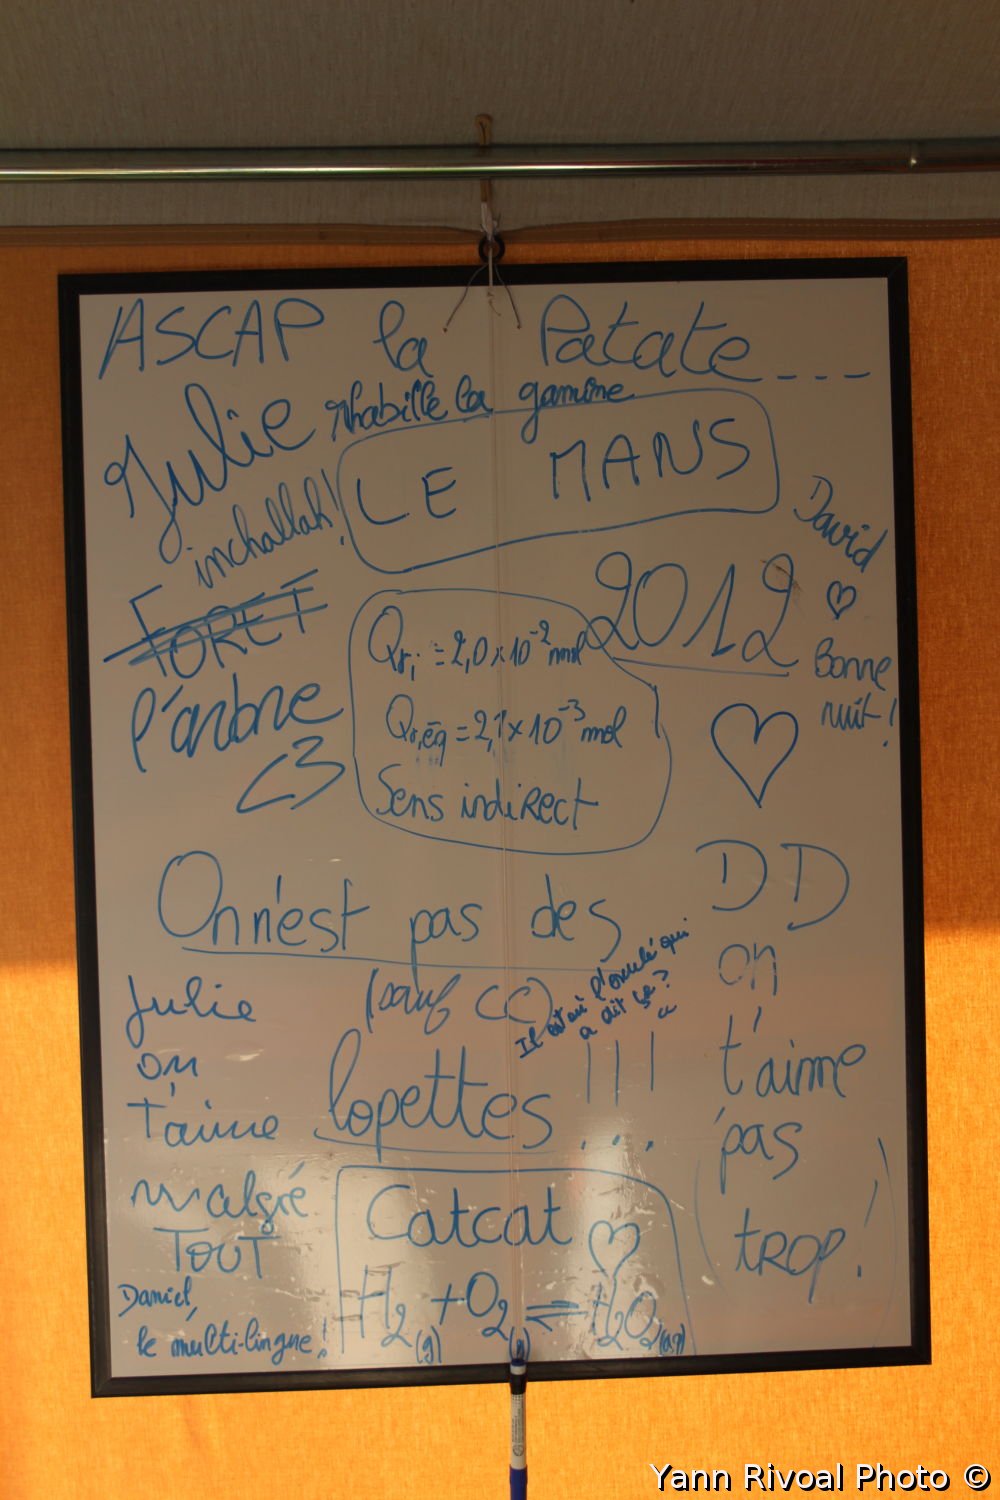 ASCAP la Patate---
Julie rhabille la gamine
inchallah!
LE MANS
David
♡
Bonne
nuit!
2012
FORET
l'arbre
<3
Qr,i = 2,0 x 10⁻² mol
Qr,éq = 2,1 x 10⁻³ mol
Sens indirect
On n'est pas des
(sauf CC)
lopettes !!!
Il est où l'enculé qui
a dit ça?
DD
on
t'aime
pas
trop!
Julie
on
t'aime
malgré
TOUT
Daniel,
le multi-lingue!
Catcat ♡
H₂(g) + O₂(g) ⇌ H₂O₂(aq)
Yann Rivoal Photo ©